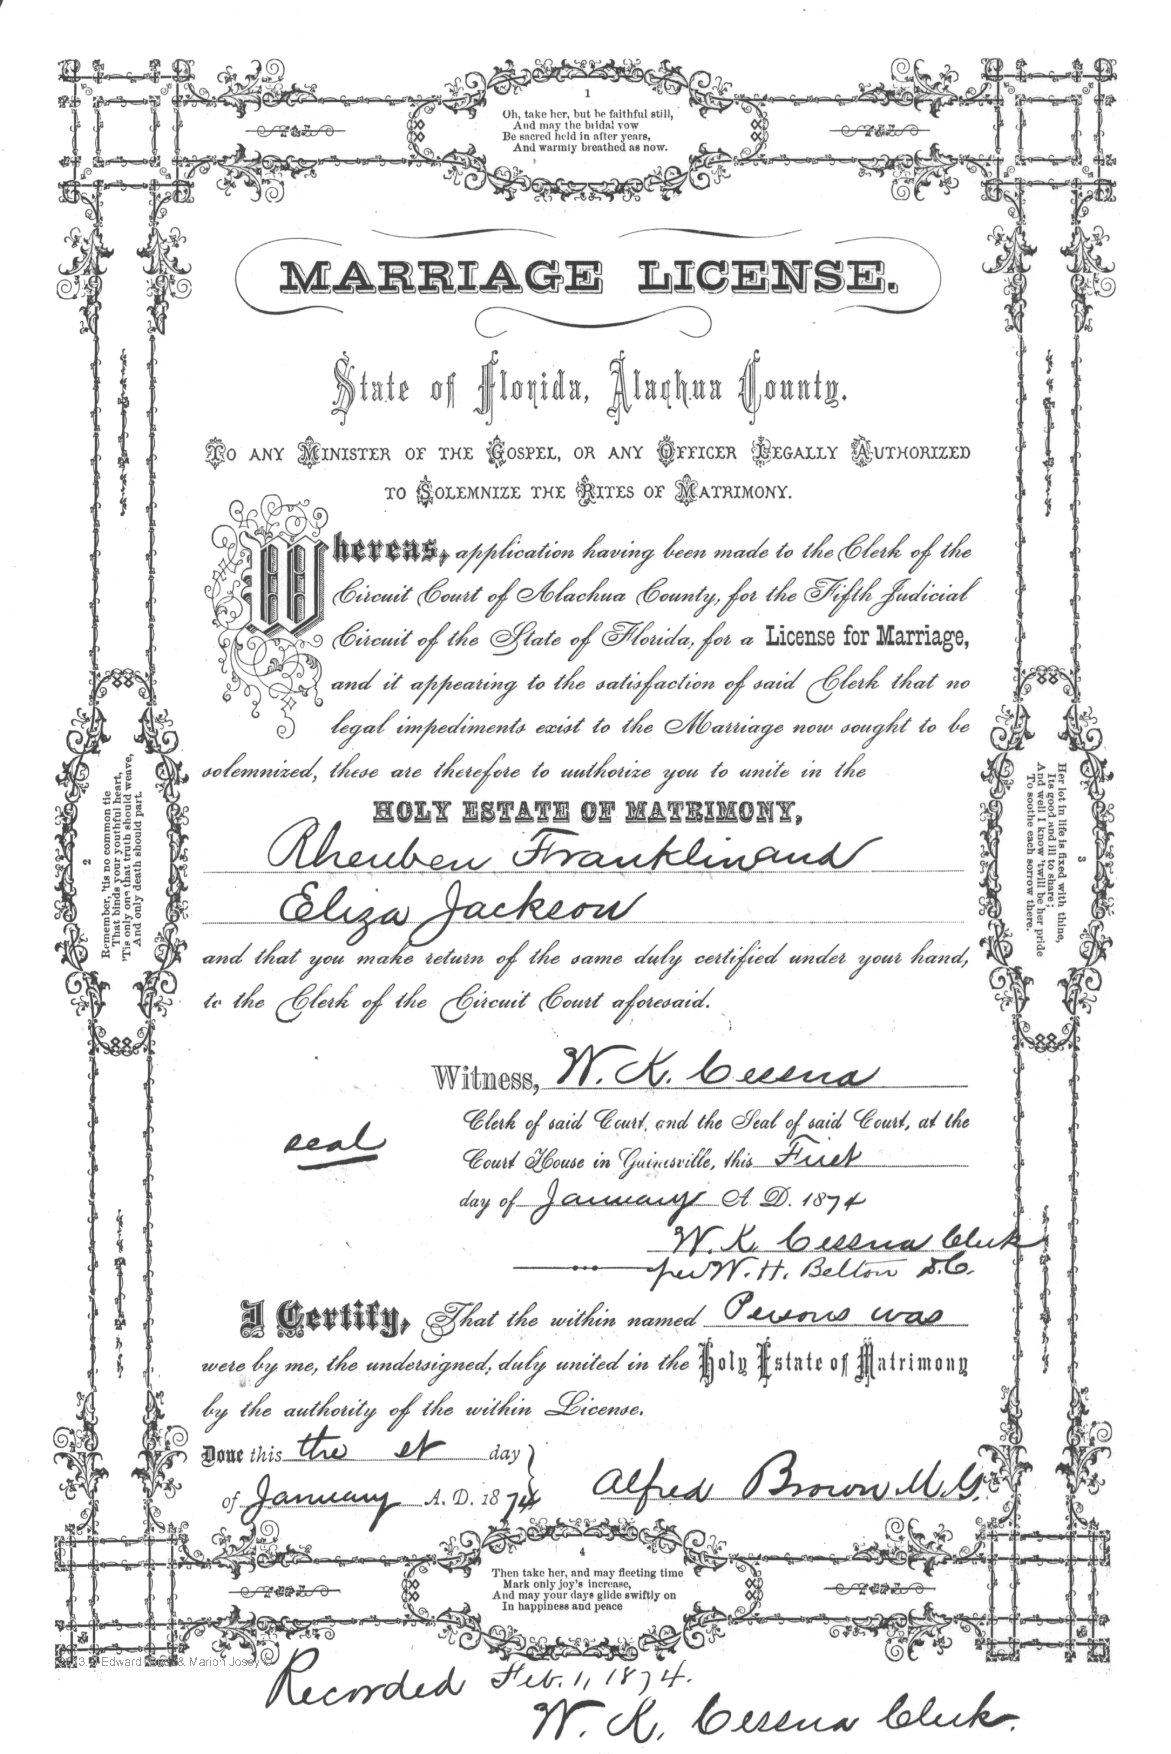 1
Oh, take her, but be faithful still,
And may the bridal vow
Be sacred held in after years,
And warmly breathed as now.
MARRIAGE LICENSE.
State of Florida, Alachua County.
TO ANY MINISTER OF THE GOSPEL, OR ANY OFFICER LEGALLY AUTHORIZED
TO SOLEMNIZE THE RITES OF MATRIMONY.
Whereas, application having been made to the Clerk of the
Circuit Court of Alachua County, for the Fifth Judicial
Circuit of the State of Florida, for a License for Marriage,
and it appearing to the satisfaction of said Clerk that no
legal impediments exist to the Marriage now sought to be
solemnized, these are therefore to authorize you to unite in the
HOLY ESTATE OF MATRIMONY,
Rheuben Franklin and
Eliza Jackson
and that you make return of the same duly certified under your hand,
to the Clerk of the Circuit Court aforesaid.
Witness, W. K. Cessna
Clerk of said Court, and the Seal of said Court, at the
seal
Court House in Gainesville, this First
day of January A. D. 1874
W. K. Cessna Clerk
per W. H. Belton D.C.
I Certify, That the within named Persons was
were by me, the undersigned, duly united in the Holy Estate of Matrimony
by the authority of the within License.
Done this the day
of January A. D. 1874
Alfred Brown M.G.
2
Remember, 'tis no common tie
That binds your youthful heart,
'Tis only one that truth should weave,
And only death should part.
3
Her lot in life is fixed with thine,
Its good and ill to share;
And well I know 'twill be her pride
To soothe each sorrow there.
4
Then take her, and may fleeting time
Mark only joy's increase,
And may your days glide swiftly on
In happiness and peace
Edward & Marion Josey
Recorded Feb. 1, 1874.
W. K. Cessna Clerk.